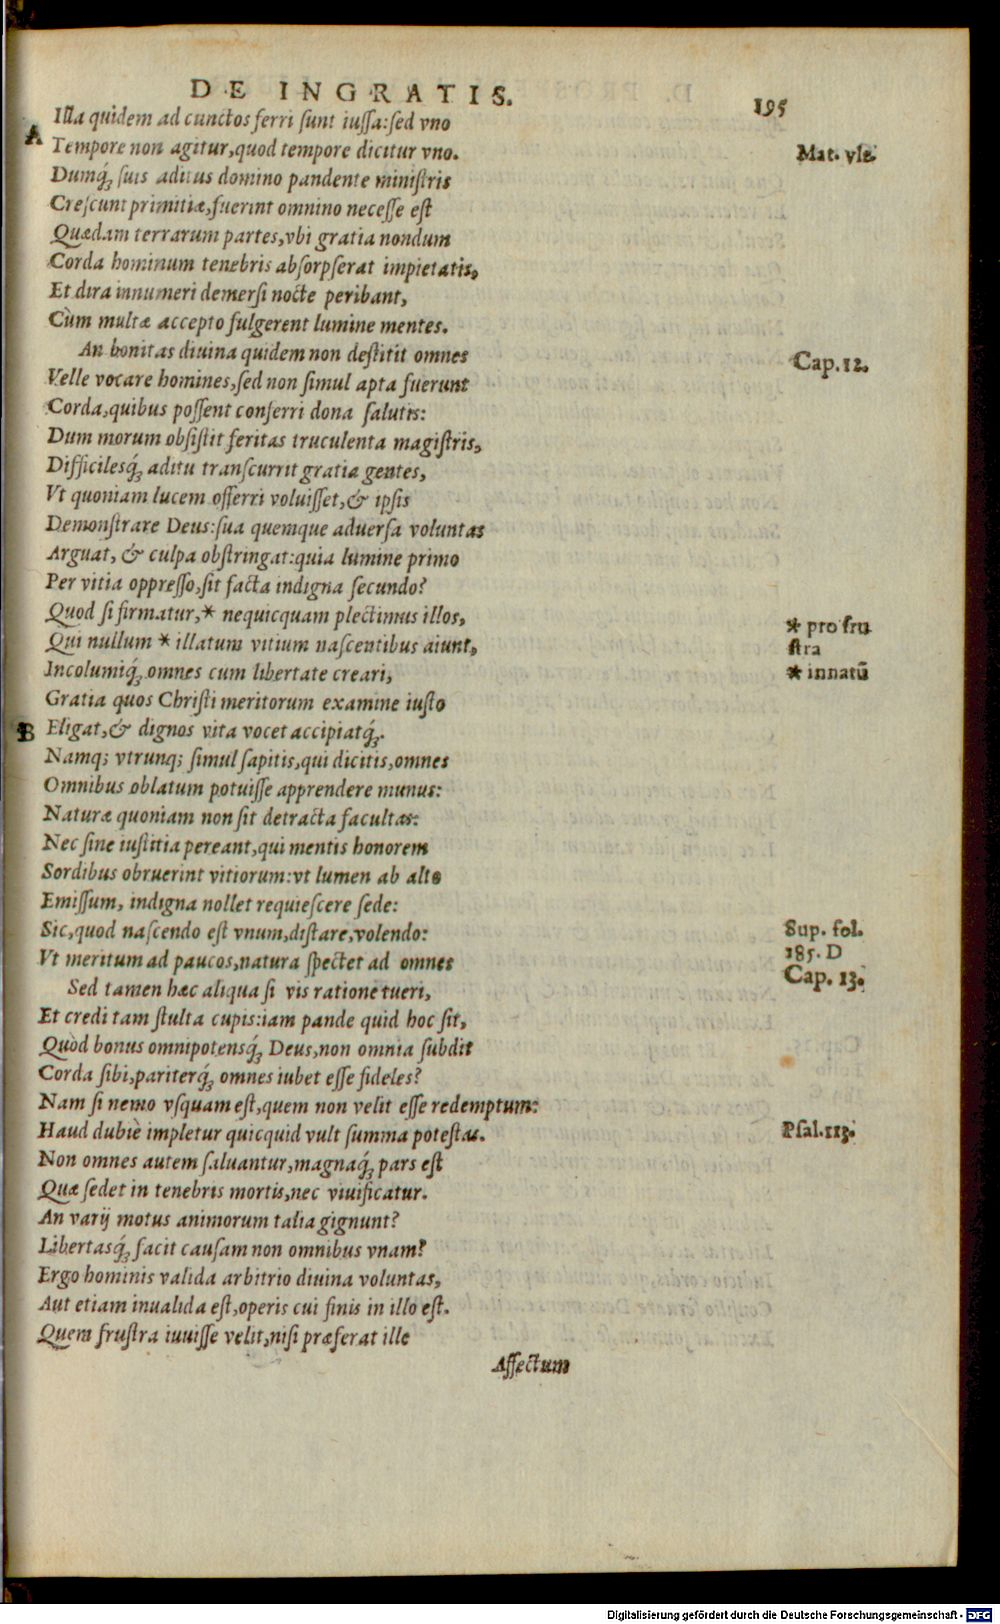 DE INGRATIS.
195
Illa quidem ad cunctos ferri sunt iussa:sed vno
A
Tempore non agitur,quod tempore dicitur vno.
Mat. vlt.
Dumq́; suis aditus domino pandente ministris
Crescunt primitiæ,fuerint omnino necesse est
Quædam terrarum partes,vbi gratia nondum
Corda hominum tenebris absorpserat impietatis,
Et dira innumeri demersi nocte peribant,
Cùm multæ accepto fulgerent lumine mentes.
An bonitas diuina quidem non destitit omnes
Cap. 12.
Velle vocare homines,sed non simul apta fuerunt
Corda,quibus possent conferri dona salutis:
Dum morum obsistit feritas truculenta magistris,
Difficilesq́; aditu transcurrit gratia gentes,
Vt quoniam lucem offerri voluisset,& ipsis
Demonstrare Deus:sua quemque aduersa voluntas
Arguat, & culpa obstringat:quia lumine primo
Per vitia oppresso,sit facta indigna secundo?
Quod si firmatur,* nequicquam plectimus illos,
* pro fru
Qui nullum * illatum vitium nascentibus aiunt,
stra
Incolumiq́; omnes cum libertate creari,
* innatū
Gratia quos Christi meritorum examine iusto
B
Eligat,& dignos vita vocet accipiatq́;.
Namq; vtrunq; simul sapitis,qui dicitis,omnes
Omnibus oblatum potuisse apprendere munus:
Naturæ quoniam non sit detracta facultas:
Nec sine iustitia pereant,qui mentis honorem
Sordibus obruerint vitiorum:vt lumen ab alto
Emissum, indigna nollet requiescere sede:
Sic,quod nascendo est vnum,distare,volendo:
Sup. fol.
Vt meritum ad paucos,natura spectet ad omnes
185. D
Sed tamen hæc aliqua si vis ratione tueri,
Cap. 13.
Et credi tam stulta cupis:iam pande quid hoc sit,
Quòd bonus omnipotensq́; Deus,non omnia subdit
Corda sibi,pariterq́; omnes iubet esse fideles?
Nam si nemo vsquam est,quem non velit esse redemptum:
Haud dubiè impletur quicquid vult summa potestas.
Psal.113.
Non omnes autem saluantur,magnaq́; pars est
Quæ sedet in tenebris mortis,nec viuificatur.
An varij motus animorum talia gignunt?
Libertasq́; facit causam non omnibus vnam?
Ergo hominis valida arbitrio diuina voluntas,
Aut etiam inualida est,operis cui finis in illo est.
Quem frustra iuuisse velit,nisi præferat ille
Affectum
Digitalisierung gefördert durch die Deutsche Forschungsgemeinschaft - DFG